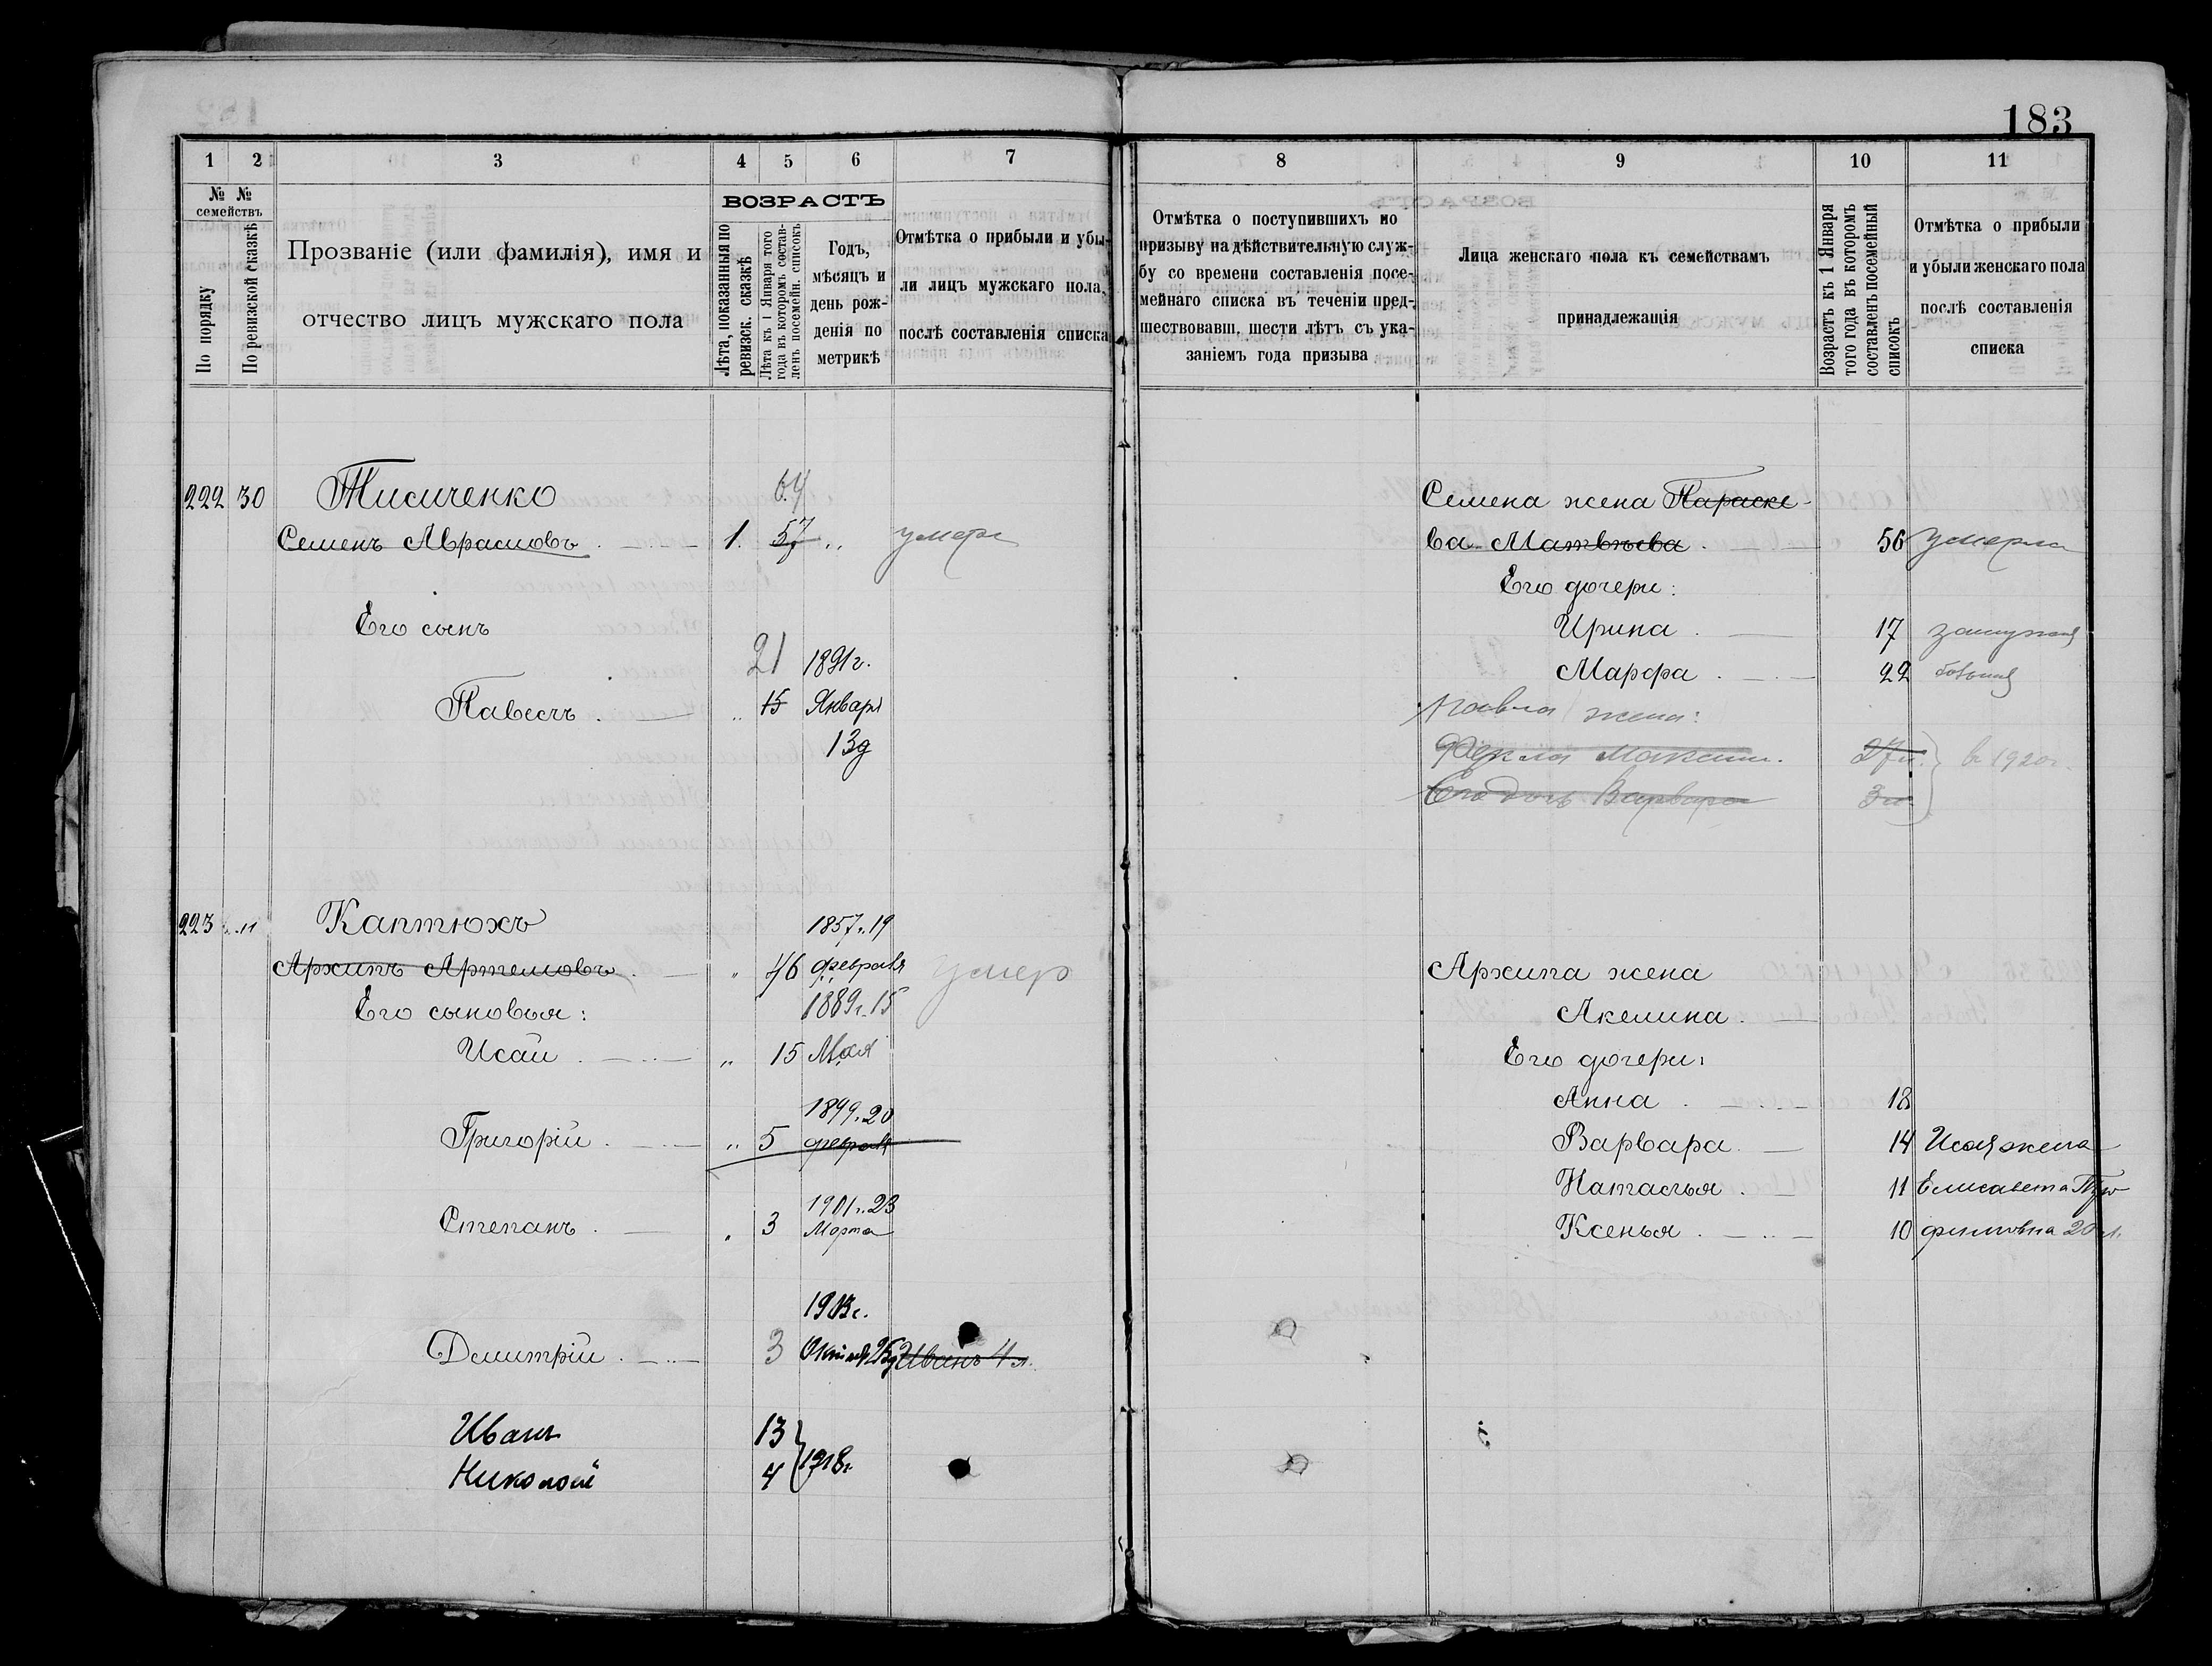 183
1 2 3 4 5 6 7
№ № семействъ
По порядку
По ревизской сказкѣ
Прозваніе (или фамилія), имя и
отчество лицъ мужскаго пола
ВОЗРАСТЪ
Лѣта, показанныя по
ревизск. сказкѣ
Лѣта къ 1 Января того
года въ которомъ состав-
ленъ посемейн. списокъ
Годъ,
мѣсяцъ и
день рож-
денія по
метрикѣ
Отмѣтка о прибыли и убы-
ли лицъ мужскаго пола,
послѣ составленія списка
8 9 10 11
Отмѣтка о поступившихъ по
призыву на дѣйствительную служ-
бу со времени составленія посе-
мейнаго списка въ теченіи пред-
шествовавш. шести лѣтъ съ ука-
заніемъ года призыва
Лица женскаго пола къ семействамъ
принадлежащія
Возрастъ къ 1 Января
того года въ которомъ
составленъ посемейный
списокъ
Отмѣтка о прибыли
и убыли женскаго пола
послѣ составленія
списка
222 30 Тисиченко 64
Семенъ Аврамовъ 1. 57 умеръ
Его сынъ
21 1891г.
Павелъ 15 Января
13д
Семена жена Параске-
ва Матвѣева 56 умерла
Его дочери:
Ирина 17 замужня
Марфа 22
Павла жена:
Фекла Максим. 27л. в 1920г.
Его дочь Варвара 3л.
223 " Каптюхъ 1857г. 19
Архипъ Артемовъ " 46 февраля умер
Его сыновья: 1889г. 15
Исаи " 15 Мая
1899г. 20
Григорій " 5 февраля
1901г. 23
Степанъ " 3 Марта
1903г.
Димитрій 3 Октября 25д Иванъ 4 л.
Иванъ 13
1918г.
Николай 4
Архипа жена
Акелина
Его дочери:
Анна 18
Варвара 14 Исая жена
Наталья 11 Елисавета
Ксенья 10 фимовна 20 л.